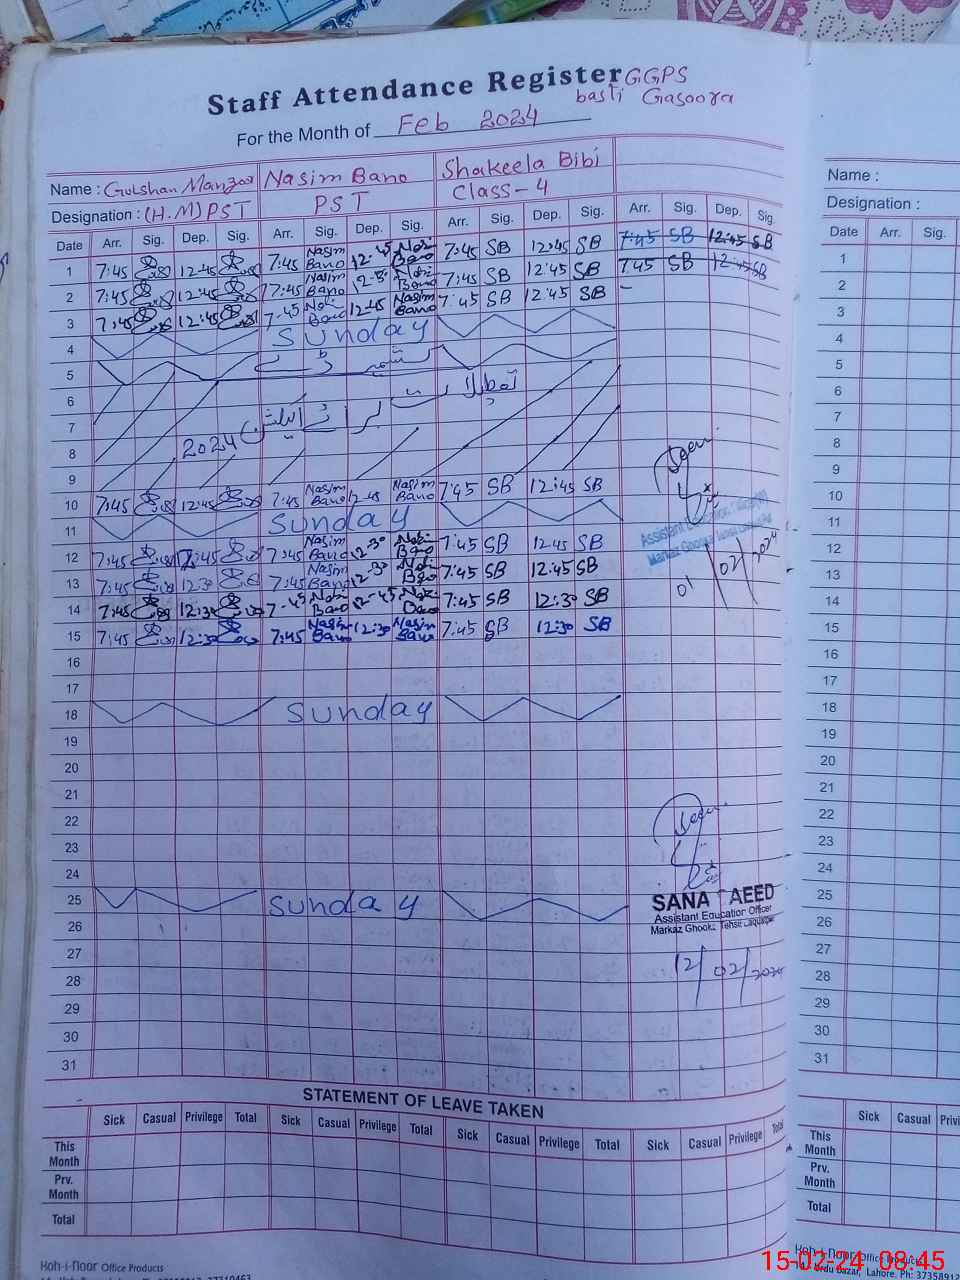 Staff Attendance Register GGPS
basti Gasoora
For the Month of Feb 2024
Name : Gulshan Manzoor Nasim Bano Shakeela Bibi
Designation : (H.M) PST PST Class-4
Date Arr. Sig. Dep. Sig. Arr. Sig. Dep. Sig. Arr. Sig. Dep. Sig. Arr. Sig. Dep. Sig.
1 7:45 12:45 7:45 Nasim Bano 12:45 Bano 7:45 SB 12:45 SB 7:45 SB 12:45 SB
2 7:45 12:45 7:45 Nasim Bano Bano 7:45 SB 12:45 SB 7:45 SB 12:45 SB
3 7:45 12:45 7-45 Bano 12-45 Nasim Bano 7:45 SB 12:45 SB
4 Sunday
5
6
7
8 2024
9
10 7:45 12:45 7:45 Nasim Bano 12-45 Nasim Bano 7:45 SB 12:45 SB
11 Sunday
12 7:45 12:45 7:45 Nasim Bano 12-30 Bano 7:45 SB 12:45 SB
13 7:45 12:30 7:45 Nasim Bano 12-30 Bano 7:45 SB 12:45 SB
14 7:45 12:30 7-45 Bano 12-45 Bano 7:45 SB 12:30 SB
15 7:45 12:30 7:45 Nasim Bano 12:30 Nasim Bano 7:45 SB 12:30 SB
16
17
18 Sunday
19
20
21
22
23
24
25 Sunday
26
27
28
29
30
31
Assistant
Markaz
01/02/2024
SANA AEED
Assistant Education Officer
Markaz Ghooka Tehsil
12/02/2024
STATEMENT OF LEAVE TAKEN
Sick Casual Privilege Total Sick Casual Privilege Total Sick Casual Privilege Total Sick Casual Privilege Total
This Month
Prv. Month
Total
Koh-i-noor Office Products
Name :
Designation :
Date Arr. Sig.
1
2
3
4
5
6
7
8
9
10
11
12
13
14
15
16
17
18
19
20
21
22
23
24
25
26
27
28
29
30
31
Sick Casual Privi
This Month
Prv. Month
Total
Koh-i-noor Office Products
Urdu Bazar, Lahore. Ph: 37358917
15-02-24 08:45